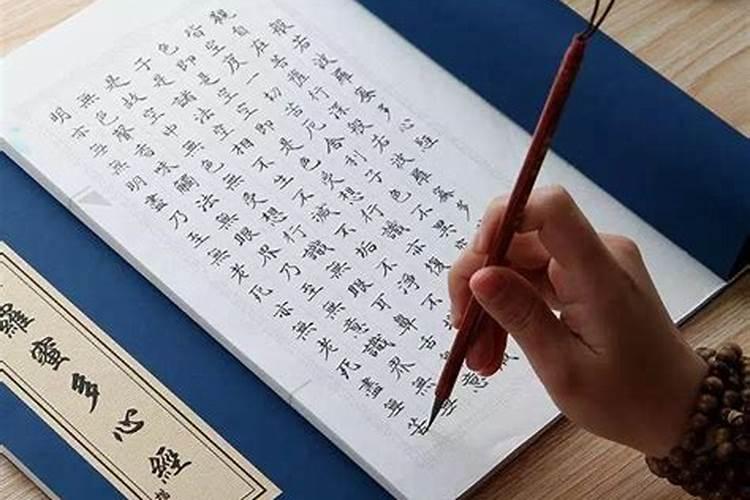 般若波羅蜜多心經
觀自在菩薩行深般若波羅蜜多
皆空度一切苦厄舍利子色不異空
色即是空空即是色受想行識亦復
子是諸法空相不生不滅不垢不淨不增
是故空中無色無受想行識無眼耳鼻舌意
無色聲香味觸法無眼界乃至無意識界無
明亦無無明盡乃至無老死亦無老死盡無苦
羅蜜多心經